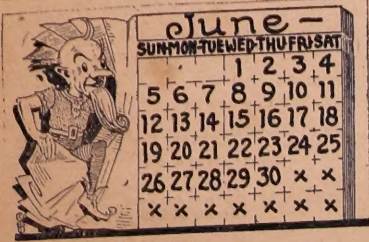 June-
SUN-MON-TUE WED-THU-FRI-SAT
1 2 3 4
5 6 7 8 9 10 11
12 13 14 15 16 17 18
19 20 21 22 23 24 25
26 27 28 29 30 x x
x x x x x x x